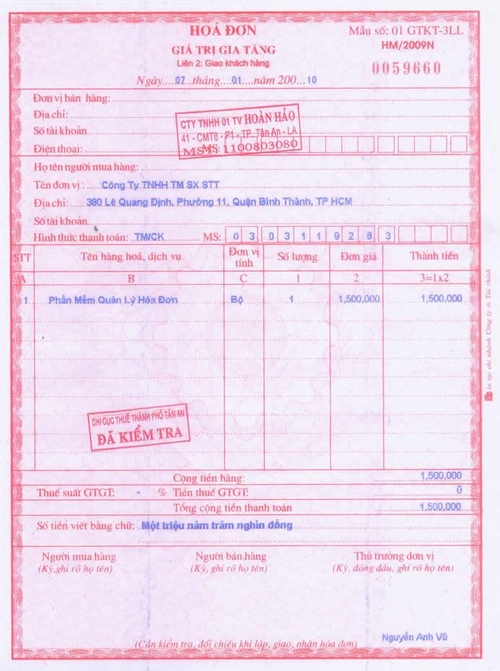 HOÁ ĐƠN
GIÁ TRỊ GIA TĂNG
Liên 2: Giao khách hàng
Mẫu số: 01 GTKT-3LL
HM/2009N
0059660
Ngày....07....tháng....01....năm 200....10
Đơn vị bán hàng:
Địa chỉ:
Số tài khoản
Điện thoại: MS:
CTY TNHH 01 TV HOÀN HẢO
41 - CMT8 - P1 - TP. Tân An - LA
MST: 1100803080
Họ tên người mua hàng:
Tên đơn vị : Công Ty TNHH TM SX STT
Địa chỉ: 380 Lê Quang Định, Phường 11, Quận Bình Thành, TP HCM
Số tài khoản
Hình thức thanh toán: TM/CK MS: 0 3 0 3 1 1 9 2 8 3
STT Tên hàng hoá, dịch vụ Đơn vị tính Số lượng Đơn giá Thành tiền
A B C 1 2 3=1x2
1 Phần Mềm Quản Lý Hóa Đơn Bộ 1 1,500,000 1,500,000
CHI CỤC THUẾ THÀNH PHỐ TÂN AN
ĐÃ KIỂM TRA
Cộng tiền hàng: 1,500,000
Thuế suất GTGT: - % Tiền thuế GTGT: 0
Tổng cộng tiền thanh toán 1,500,000
Số tiền viết bằng chữ: Một triệu năm trăm nghìn đồng
Người mua hàng Người bán hàng Thủ trưởng đơn vị
(Ký, ghi rõ họ tên) (Ký, ghi rõ họ tên) (Ký, đóng dấu, ghi rõ họ tên)
Nguyễn Anh Vũ
(Cần kiểm tra, đối chiếu khi lập, giao, nhận hóa đơn)